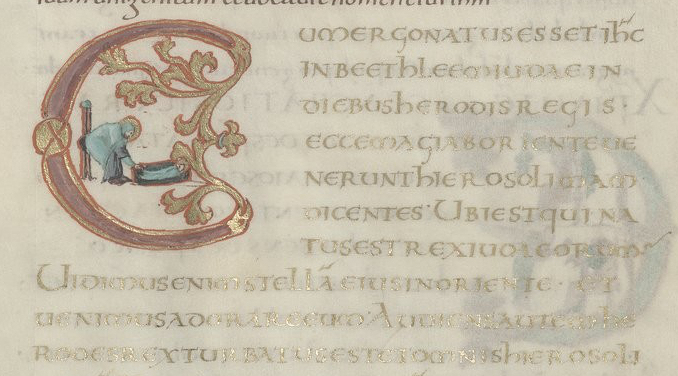 CUMERGONATUSESSETIHC
INBEETHLEEMIUDAEIN
DIEBUSHERODISREGIS·
ECCEMAGIABORIENTEUE
NERUNTHIEROSOLIMAM
DICENTES·UBIESTQUINA
TUSESTREXIUDEORUM
UIDIMUSENIMSTELLĀEIUSINORIENTE·ET
UENIMUSADORAREEUM·AUDIENSAUTEMHE
RODESREXTURBATUSESTETOMNISHIEROSOLI